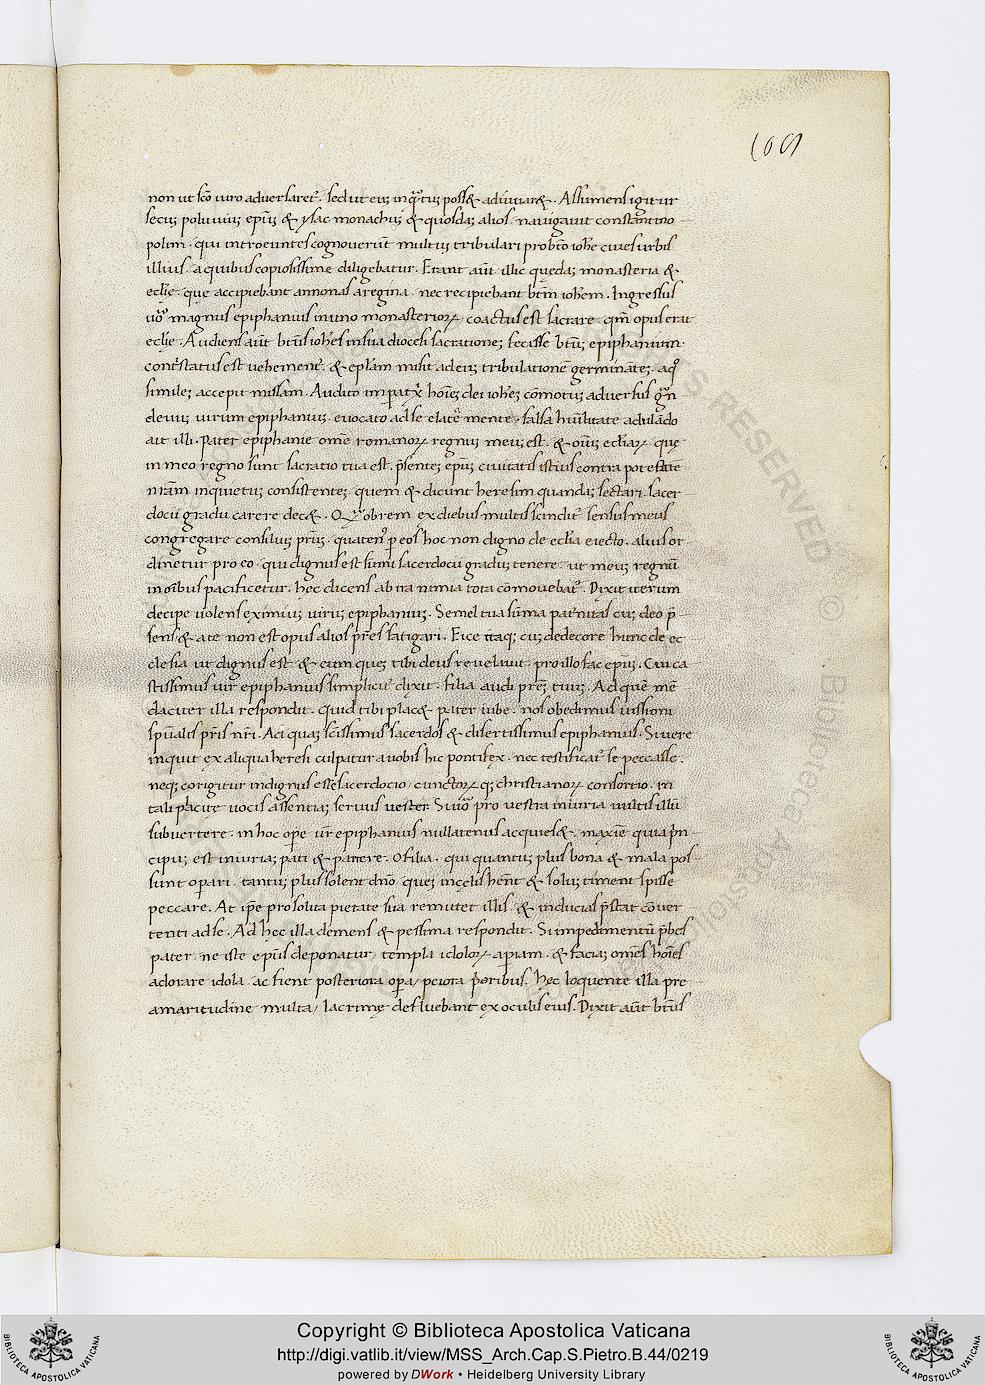 109
non ut sc̄o viro adversaret᷒. sed ut eius inq̄ntū poss& adiuvar&. Assumens igitur
secū polivium ep̄m & ysac monachū & quosdā alios. navigavit constantino
polim. qui introeuntes cognoverūt multū tribulari prob̄ro ioh̄e cives urbis
illius. a quibus copiosissime diligebatur. Erant aūt illic quedā monasteria &
eccl̄ie. que accipiebant annonas a regina. nec recipiebant btm̄ ioh̄em. Ingressus
v̄o magnus epiphanius in uno monasterioꝝ, coactus est sacrare. qm̄ opus erat
eccl̄ie. Audiens aūt btūs ioh̄es in sua diocesi sacrationē fecisse btm̄ epiphanium.
cont᷒status est vehement᷒. & epl̄am misit ad eū tribulationē germinantē. a q°
similē accepit missam. Audito imperatrix hoīes dei ioh̄es com̄otus adversus
deivus virum epiphaniū. evocato ad se elate mente. falsa humilitate adulādo
ait illi. Pater epiphanie om̄e romanoꝝ regnū meū est. & om̄s eccl̄iaꝝ que
in meo regno sunt sacratio tua est. p̄sente ep̄m civitatis istius contra potestatē
nr̄am inquietū consistente. quem & dicunt heresim quandā sectari. sacer
docii gradu carere dec&. Quāobrem ex diebus multis scindit᷒ sensus meus
congregare consilium pr̄um. quaten᷒ p eos hoc non digno de ecclīa eiecto. alius or
dinetur pro eo. qui dignus est sūmi sacerdocii gradū tenere. ut meū regnū
in om̄ibus pacificetur. hec dicens ab ira nimia tota com̄ovebat᷒. Dixit iterum
decipe volens eximiū virū epiphaniū. Semel tua sūma paternitas cū deo p̄
sens & a te non est opus alios pr̄es fatigari. Eice itaq; cū dedecore hinc de ec
clesia ut dignus est & eum quē tibi deus revelavit. pro illo fac ep̄m. Cui ca
stissimus vir epiphanius simplicit᷒ dixit. filia audi prēm tuū. Ad quē mē
daciter illa respondit. quid tibi plac& pater iube. nos obedimus iussioni
sp̄ualis pr̄is nr̄i. Ad quā sc̄issimus sacerdos & disertissimus epiphanius. Si vere
inquit ex aliqua heresi culpatur a vobis hic pontifex. nec testificat᷒ se peccasse.
neq; corigitur indignus esse sacerdocio, cunctoꝝq; christianoꝝ consortio. in
tali placite vocis assentiā servus vester. Si v̄o pro vestra iniuria vultis illū
subvertere. in hoc ope vr̄ epiphanius nullatenus acquiesc&. maxīe quia p̄n
cipū est iniuriā pati & parcere. O filia. qui quantū plus bona & mala pos
sunt opari. tantū plus solent dn̄o quē in celis hēnt & solū timent spisse
peccare. At ipe pro solita pietate sua remittet illis. & inducias p̄stat cōver
tenti ad se. Ad hec illa demens & pessima respondit. Si impedimentū p̄bes
pater. ne iste ep̄us deponatur, templa idoloꝝ aperiam. & faciā omēs hoīes
adorare idola. ac fient posteriora opa, peiora p̄oribus. Hec loquente illa pre
amaritudine multa, lacrime defluebant ex oculis eius. Dixit aūt btūs
RIGHTS RESERVED © Biblioteca Apostolica
Copyright © Biblioteca Apostolica Vaticana
http://digi.vatlib.it/view/MSS_Arch.Cap.S.Pietro.B.44/0219
powered by DWork • Heidelberg University Library
BIBLIOTECA APOSTOLICA VATICANA
BIBLIOTECA APOSTOLICA VATICANA